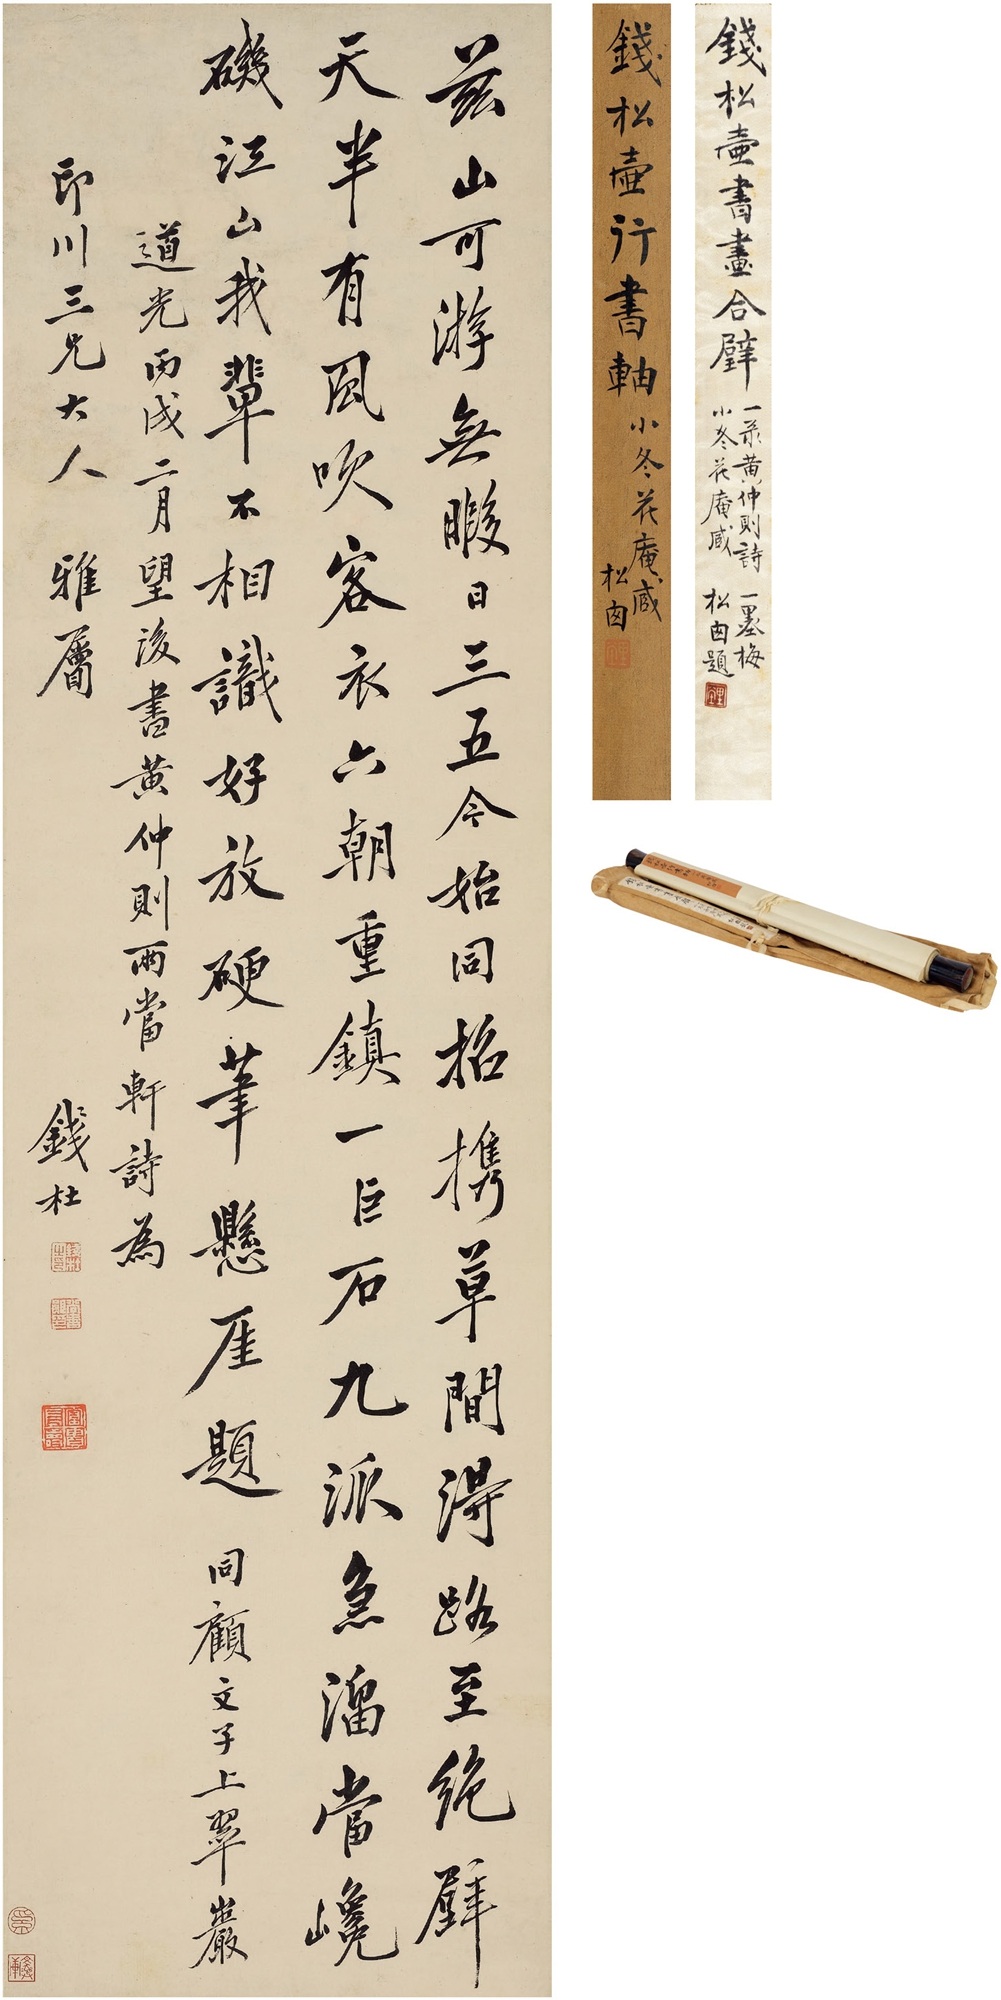 茲山可游無暇日三五今始同招携草間得路至絶壁
天半有風吹客衣六朝重鎮一巨石九派急溜當巉
磯江山我輩不相識好放硬筆懸厓題 同顧文子上翠巖
道光丙戌二月望後書黃仲則兩當軒詩為
印川三兄大人 雅屬 錢杜
錢松壺行書軸
小冬花庵臧
松囱
錢松壺書畫合璧
一录黃仲則詩 一墨梅
小冬花庵臧 松囱題